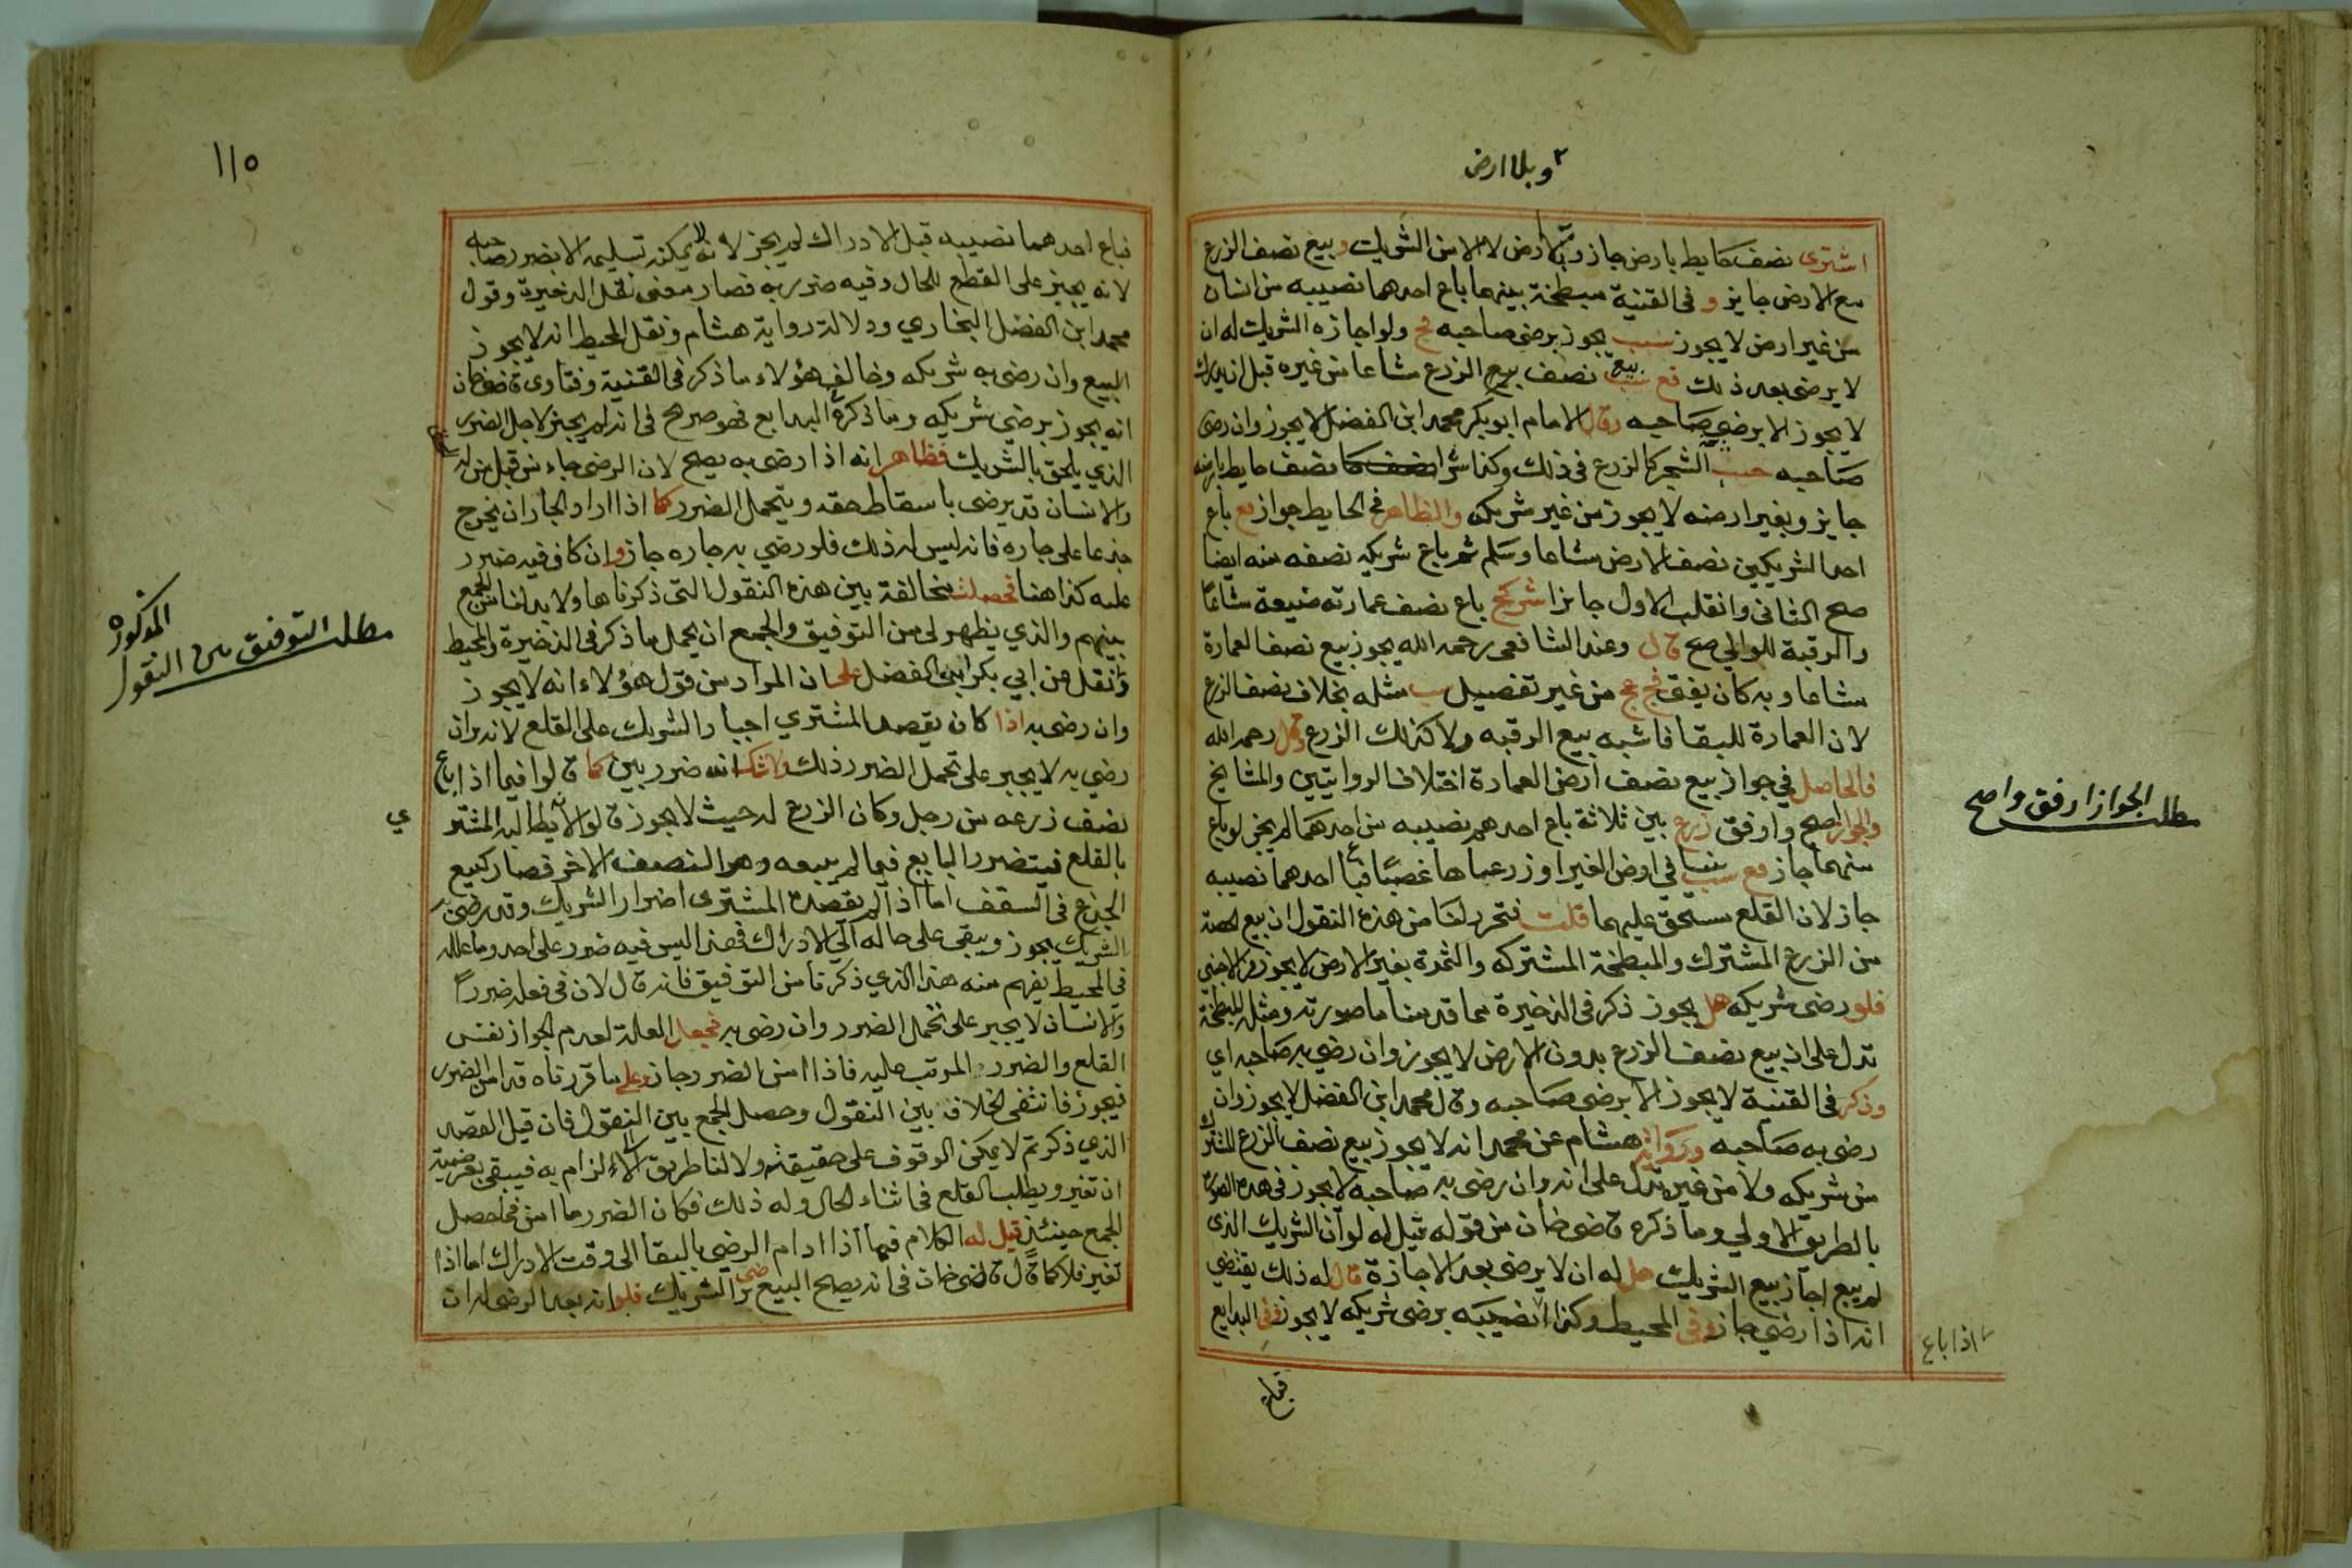 وبلا ارض
اشترى نصف حايط بارض جاز وبلا ارض لا الا من الشريك وبيع نصف الزرع
مع الارض جايز و في القنية مبطخة بينهما باع احدهما نصيبه من انسان
من غير ارض لا يجوز سب يجوز برضى صاحبه مج ولو اجازه الشريك له ان
لا يرضى بعد ذلك قع سب بيع نصف بيع الزرع مشاعا من غيره قبل ان يدرك
لا يجوز الا برضى صاحبه وقال الامام ابو بكر محمد ابن الفضل لا يجوز وان رضى
صاحبه حب الشجر كالزرع في ذلك وكذا شرا نصف حايط بارضه
جايز وبغير ارضه لا يجوز من غير شريكه والظاهر في الحايط جواز مع باع
احد الشريكين نصف الارض مشاعا وسلم ثم باع شريكه نصفه منه ايضا
صح الثاني وانقلب الاول جايزا باع نصف عمارته ضيعة مشاعا
والرقبة للوالي صح قال وعند الشافعي رحمه الله يجوز بيع نصف العمارة
مشاعا وبه كان يفتى من غير تفصيل سب مثله بخلاف نصف الزرع
لان العمارة للبقا فاشبه بيع الرقبه ولا كذلك الزرع قال رحمه الله
فالحاصل في جواز بيع نصف ارض العمارة اختلاف الروايتين والمشايخ
والجواز اصح وارفق زرع بين ثلاثة باع احدهم نصيبه من احدهما لم يجز لو باع
منهما جاز مع سب في ارض الغير او زرعها غصبا فباع احدهما نصيبه
جاز لان القلع مستحق عليهما قلت فتحرر لنا من هذه النقول ان بيع الحصة
من الزرع المشترك والمبطخة المشتركه والثمرة بغير الارض لا يجوز من الاجنبي
فلو رضى شريكه هل يجوز ذكر في الذخيرة مما قدمنا ما صورته ومثله المبطخة
تدل على ان بيع نصف الزرع بدون الارض لا يجوز وان رضي به صاحبه اي
وذكر في القنية لا يجوز الا برضى صاحبه وقال محمد ابن الفضل لا يجوز وان
رضى به صاحبه ورواية هشام عن محمد انه لا يجوز بيع نصف الزرع المشترك
من شريكه ولا من غيره تدل على انه وان رضى به صاحبه لا يجوز في هذه الصورة
بالطريق الاولي وما ذكره قاضي خان من قوله قيل له لو ان الشريك الذي
لم يبع اجاز بيع الشريك هل له ان لا يرضى بعد الاجازة قال له ذلك يقتضي
انه اذا رضي جاز وفي المحيط وكذا نصيبه برضى شريكه لا يجوز وفي البدايع
اذا باع
فباع
مطلب الجواز ارفق واصح
١١٥
فباع احدهما نصيبه قبل الادراك لم يجز لانه لا يمكنه تسليمه الا بضرر صاحبه
لانه يجبر على القطع للحال وفيه ضرر به فصار معنى نقل الذخيرة وقول
محمد ابن الفضل البخاري ودلالة رواية هشام ونقل المحيط انه لا يجوز
البيع وان رضى به شريكه وخالف هؤلاء ما ذكر في القنية وفتاوى قاضيخان
انه يجوز برضى شريكه وما ذكره البدايع فهو صريح في انه لم يجز لاجل الضرر
الذي يلحق بالشريك فظاهر انه اذا رضى به يصح لان الرضى جاء من قبل من له
والانسان قد يرضى باسقاط حقه ويتحمل الضرر كما اذا اراد الجار ان يخرج
جذعا على جاره فانه ليس له ذلك فلو رضي به جاره جاز وان كان فيه ضرر
عليه كذا هنا فحصلت مخالفة بين هذه النقول التي ذكرناها ولا بد لنا من الجمع
بينهم والذي يظهر لي من التوفيق والجمع ان يحمل ما ذكر في الذخيرة والمحيط
ونقل عن ابي بكر ابن الفضل على ان المراد من قول هؤلاء انه لا يجوز
وان رضى به اذا كان يقصد المشتري اجبار الشريك على القلع لانه وان
رضي به لا يجبر على تحمل الضرر ذلك ولا شك انه ضرر بين كما قالوا فيما اذا باع
نصف زرعه من رجل وكان الزرع له حيث لا يجوز قالوا لانه يطالبه المشتري
بالقلع فيتضرر البايع فيما لم يبعه وهو النصف الاخر فصار كبيع
الجذع في السقف اما اذا لم يقصد المشترى اضرار الشريك وقد رضى به
الشريك يجوز ويبقى على حاله الي الادراك فهذا ليس فيه ضرر على احد وما علله
في المحيط يفهم منه هذا الذي ذكرنا من التوفيق فانه قال لان في فعله ضررا
والانسان لا يجبر على تحمل الضرر وان رضى به فجعل العلة لعدم الجواز نفس
القلع والضرر المرتب عليه فاذا امن الضرر جاز وعلى ما قررناه قد امن الضرر
فيجوز فانتفى الخلاف بين النقول وحصل الجمع بين النقول فان قيل القصد
الذي ذكرتم لا يمكن الوقوف على حقيقته ولا لنا طريق الى الالزام به فيبقى بعرضية
ان تغير ويطلب القلع في اثناء الحال وله ذلك فكان الضرر ما امن فما حصل
الجمع حينئذ قيل له الكلام فيما اذا ادام الرضى بالبقا الى وقت الادراك اما اذا
تغير فلا كما قال قاضى خان في انه يصح البيع برضى الشريك فلو انه بعد الرضى له ان
مطلب التوفيق بين النقول
المذكوره